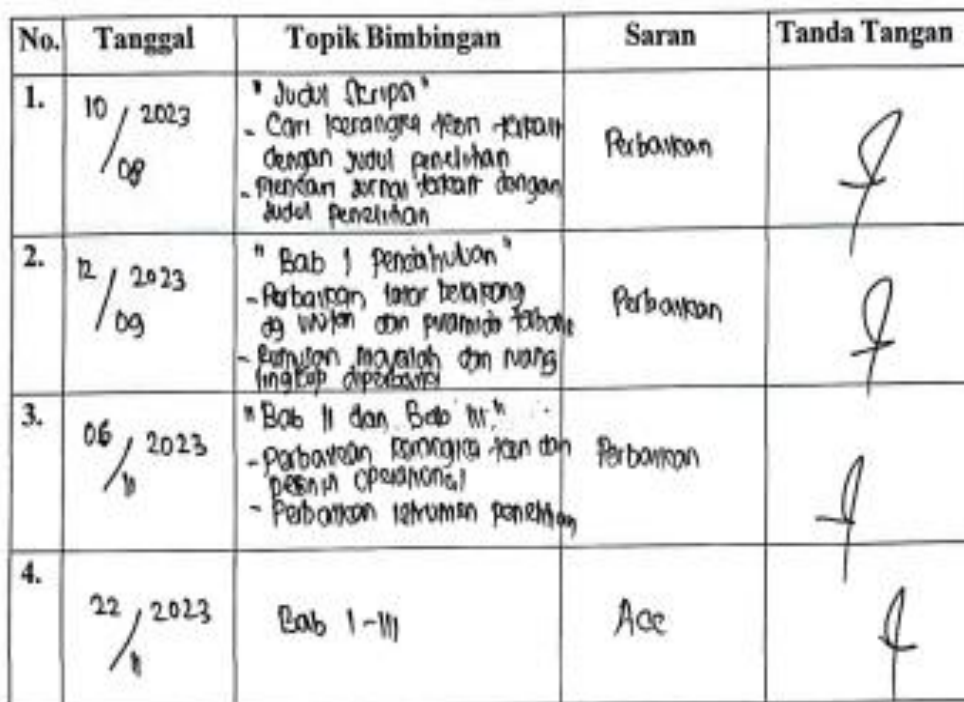 No. Tanggal Topik Bimbingan Saran Tanda Tangan
1.
10 / 2023
08
" Judul Skripsi "
- Cari kerangka teori terkait
dengan judul penelitian
- Mencari jurnal terkait dengan
judul penelitian
Perbaikan
2.
12 / 2023
09
" Bab I Pendahuluan "
- Perbaikan latar belakang
dg urutan dan piramida terbalik
- Rumusan masalah dan ruang
lingkup diperbaiki
Perbaikan
3.
06 / 2023
11
" Bab II dan Bab III "
- Perbaikan kerangka teori dan
operasional
- Perbaikan penelitian
Perbaikan
4.
22 / 2023
11
Bab I - III
Acc